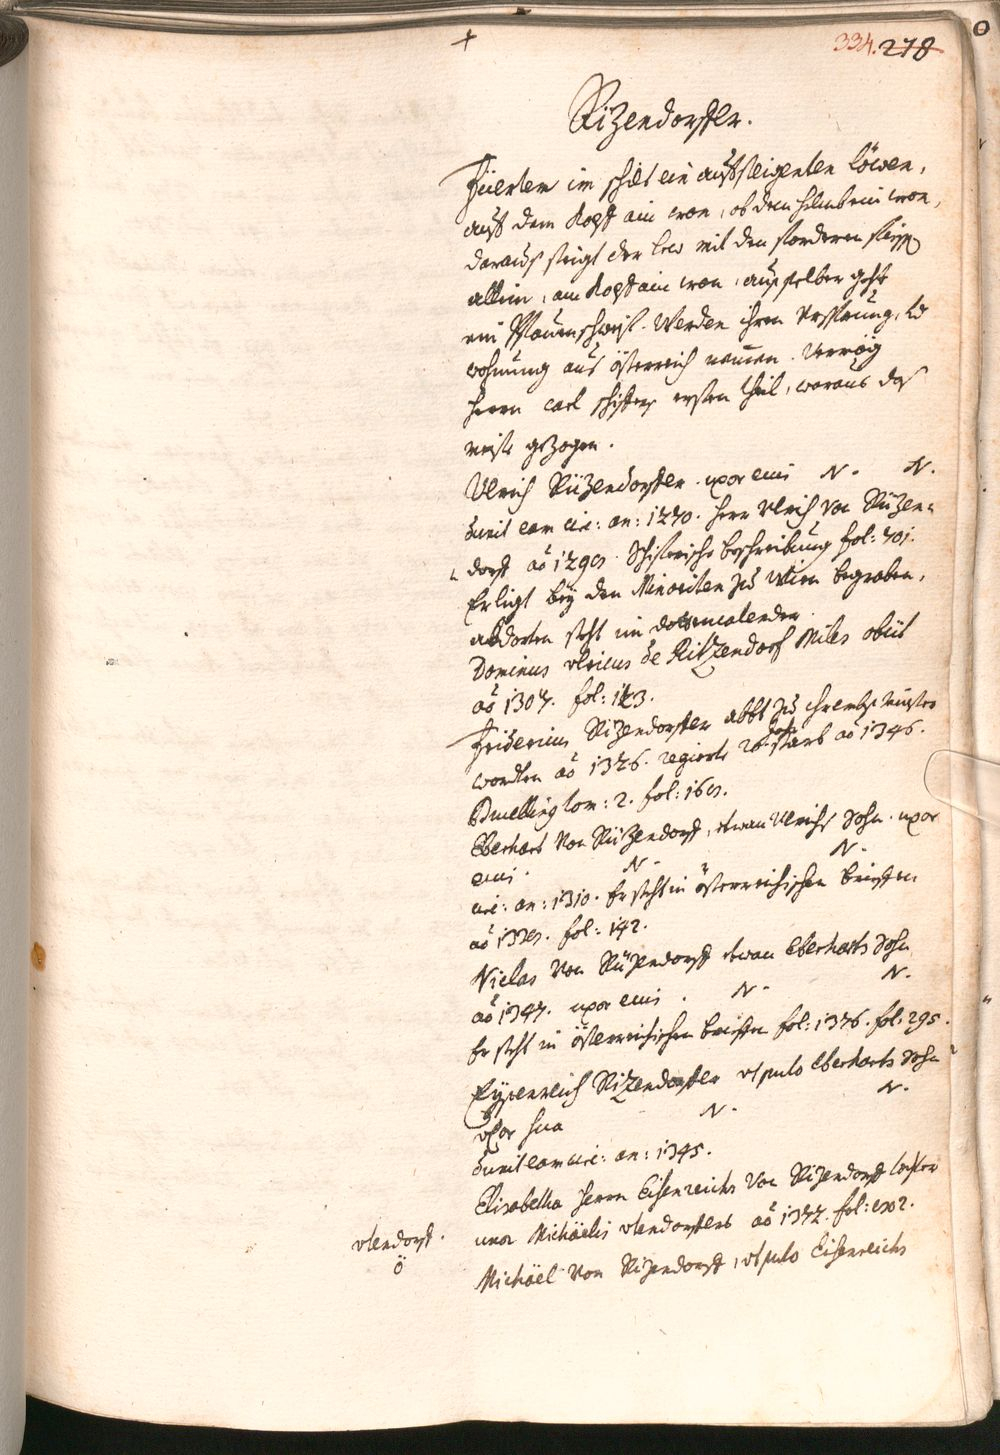 334. 278
Rizendorffer.
Füerten im schilt ein auffsteigenten löwen,
auff dem Kopff ain cron, ob dem helmb ein cron,
daraus steigt der lew mit den forderen füessen
allein, am Kopff ain cron, auss selber geht
ein Pfauenschweif. Werden ihren Vrsprung, vnd
wohnung aus österreich nemen. Vermög
herrn carl ersten theil, woraus das
meiste gezogen.
Vlrich Rüzendorffer. uxor eius N. N.
an: 1270. herr Vlrich von Rüzen=
dorff aō 1290. beschreibung fol: 701.
Er ligt bey den Minoriten zu Wien begraben,
aldorten steht im
Dominus vlricus de Ritzendorf Miles obiit
aō 1307. fol: 123.
Fridericus Rizendorffer abbt zu
worden aō 1326. regierte 20. Jahr starb aō 1346.
tom: 2. fol: 160.
Eberhart von Rüzendorff, etwan Vlrichs Sohn. uxor
eius. N. N.
an: 1310. Er steht in österreichischen brieffen
aō 1330. fol: 142.
Niclas von Rüzendorff etwan Eberharts Sohn
aō 1347. uxor eius. N. N.
Er steht in österreichischen brieffen fol: 1376. fol: 295.
Eysenreich Rizendorffer vt puto Eberharts Sohn
vxor sua N. N.
an: 1345.
Elisabetha herrn Eisenreichs von Rizendorff tochter
uxor Michäelis vlendorffers aō 1377. fol:
vlendorff.
ö
Michäel von Rizendorff, vt puto Eisenreichs